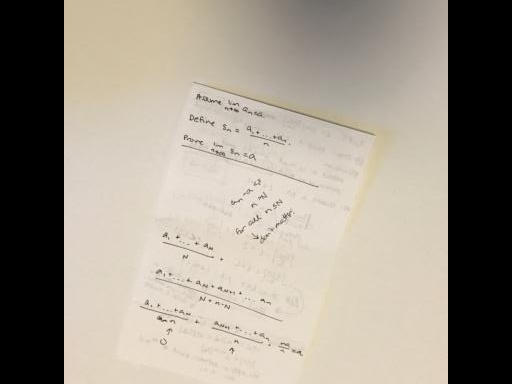 Assume lim n→∞ an = a.
Define Sn = a1 + ... + an / n.
Prove lim n→∞ Sn = a
n > N
for all n > N
↳ don't matter.
a1 + ... + aN / N +
a1 + ... + aN + aN+1 + ... an / N + n - N
a1 + ... + aN / n + aN+1 + ... + an / n
↑ ↑
0